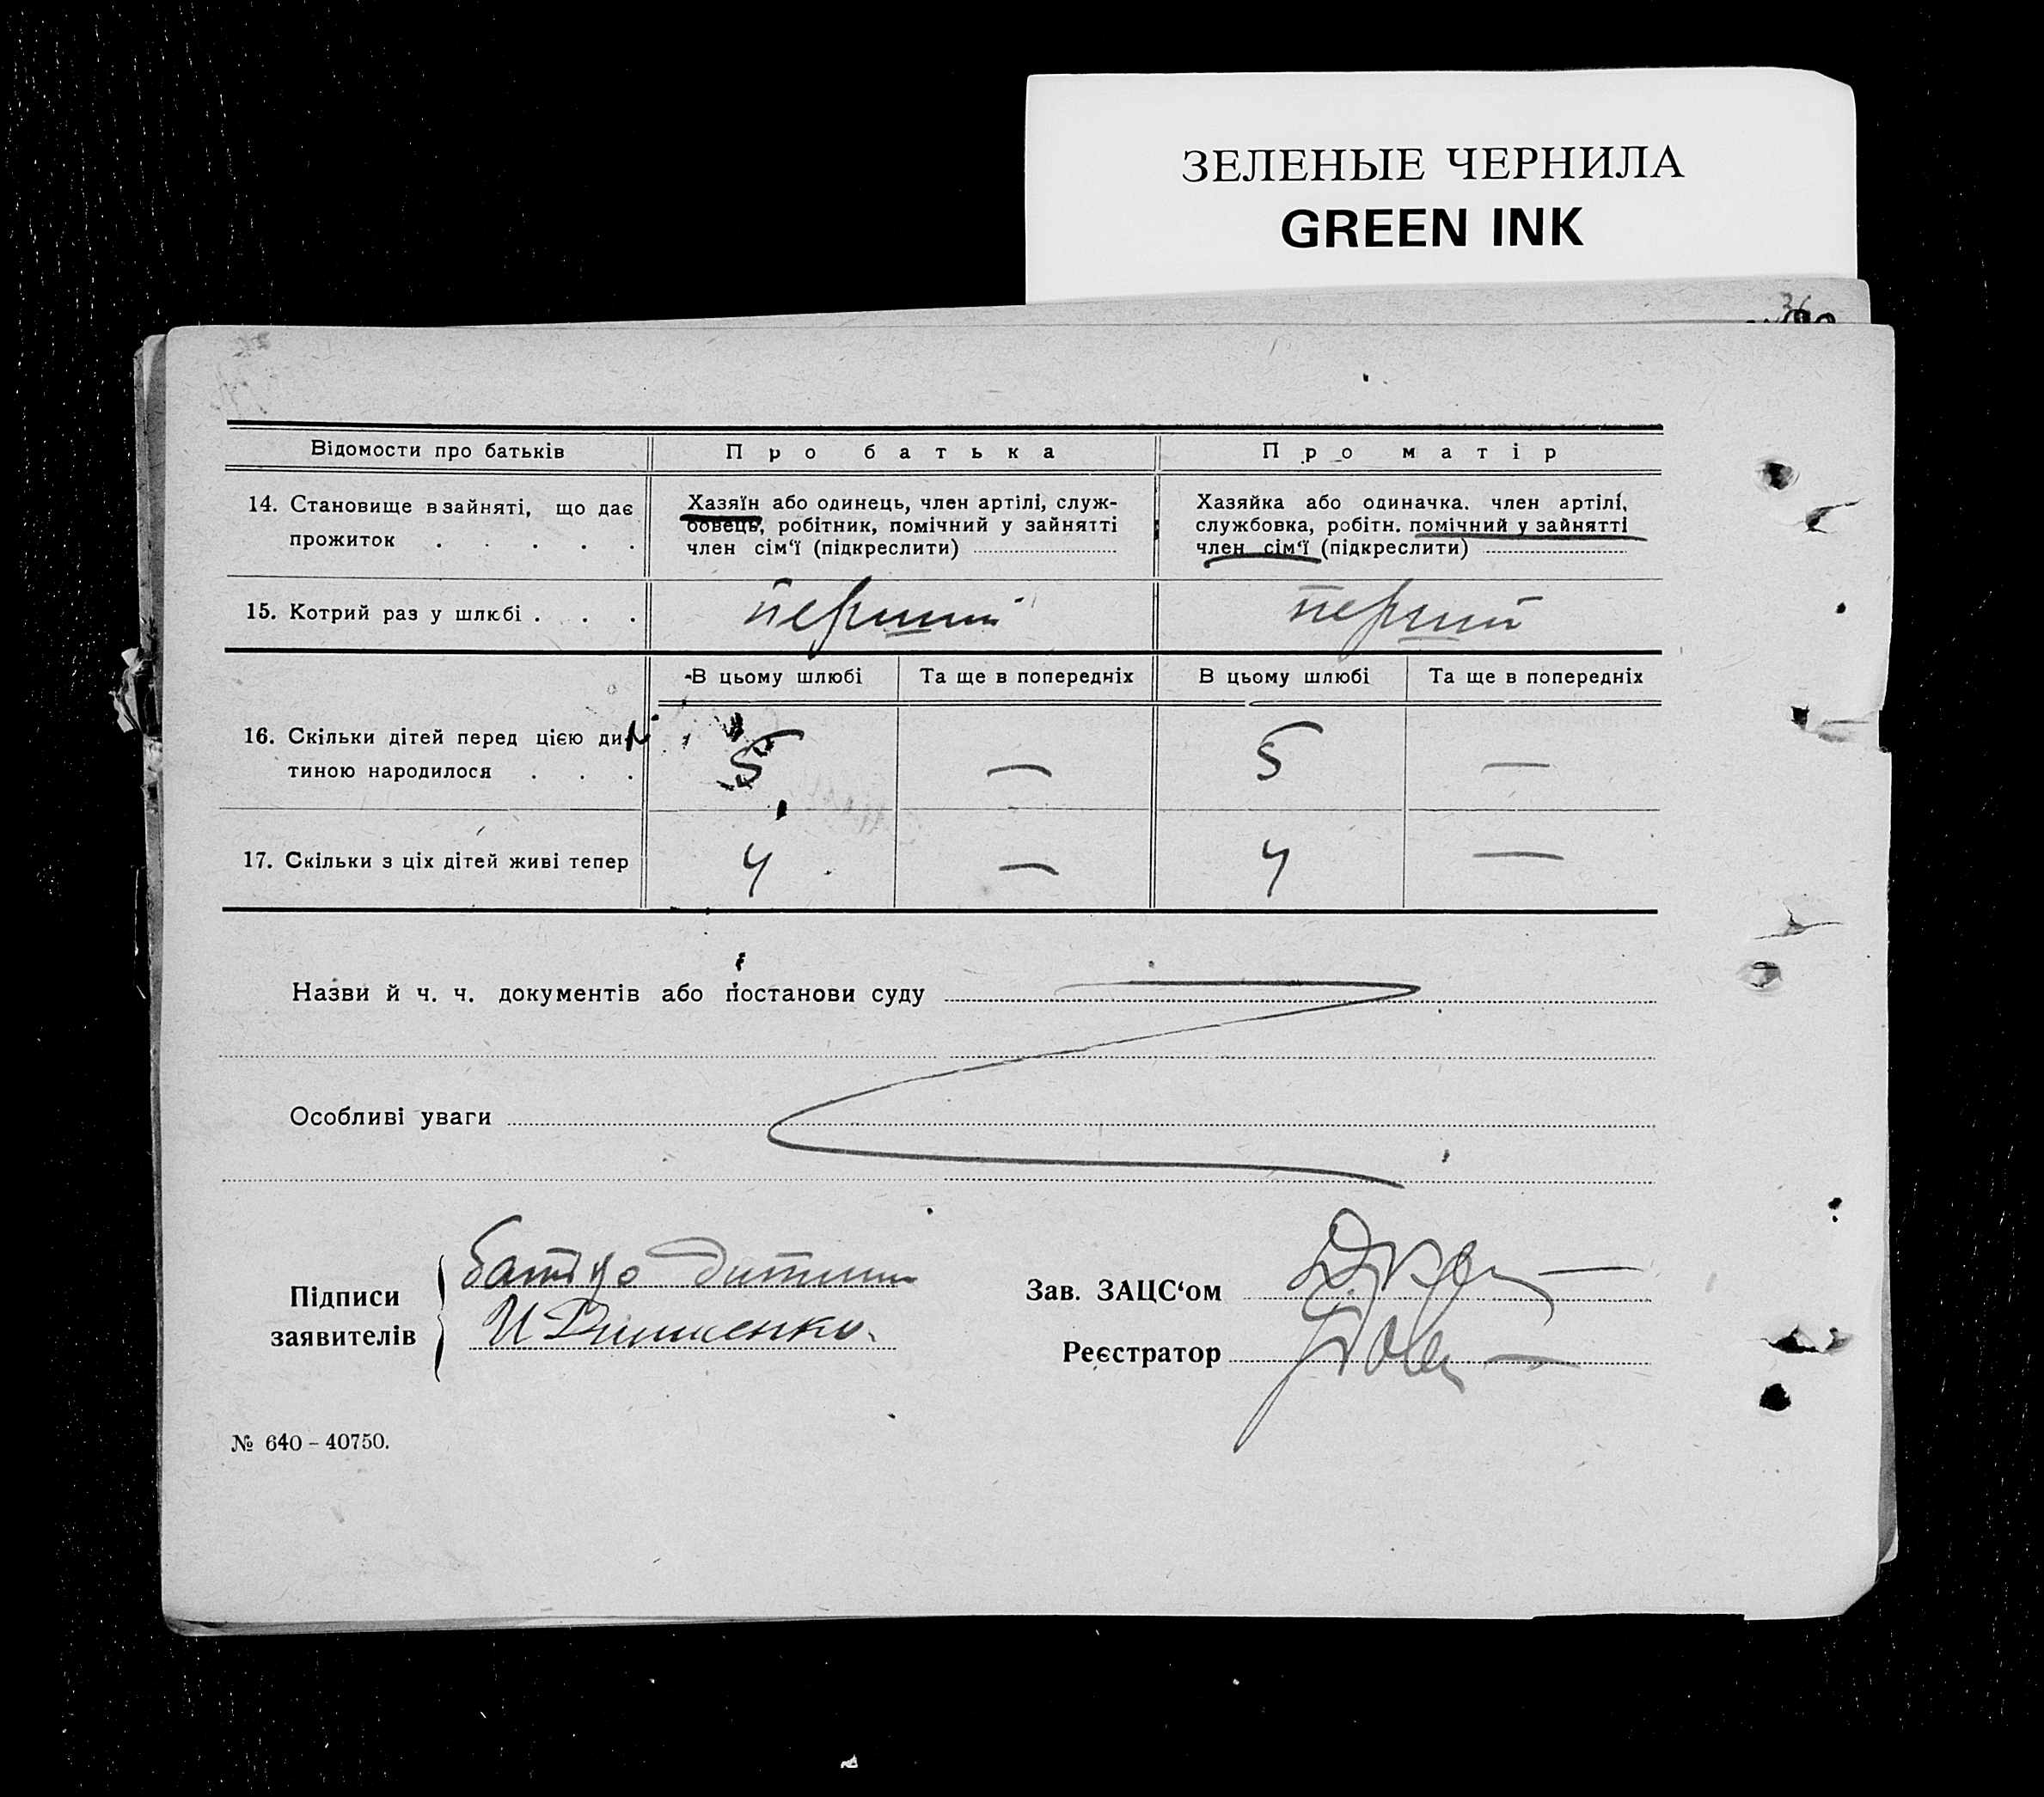 ЗЕЛЕНЫЕ ЧЕРНИЛА
GREEN INK
36
Відомости про батьків
Про батька
Про матір
14. Становище в зайняті, що дає
прожиток . . . . .
Хазяїн або одинець, член артілі, служ-
бовець, робітник, помічний у зайнятті
член сім‘ї (підкреслити)
Хазяйка або одиначка. член артілі,
службовка, робітн. помічний у зайнятті
член сім‘ї (підкреслити)
15. Котрий раз у шлюбі . . .
перший
перший
В цьому шлюбі
Та ще в попередніх
В цьому шлюбі
Та ще в попередніх
16. Скільки дітей перед цією ди-
тиною народилося . . .
5 — 5 —
17. Скільки з ціх дітей живі тепер
4 — 4 —
Назви й ч. ч. документів або постанови суду
Особливі уваги
Підписи
заявителів
батько дитини
Зав. ЗАЦС‘ом
Реєстратор
№ 640 – 40750.